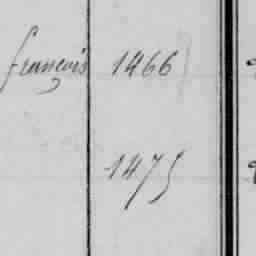 françois 1466
1475